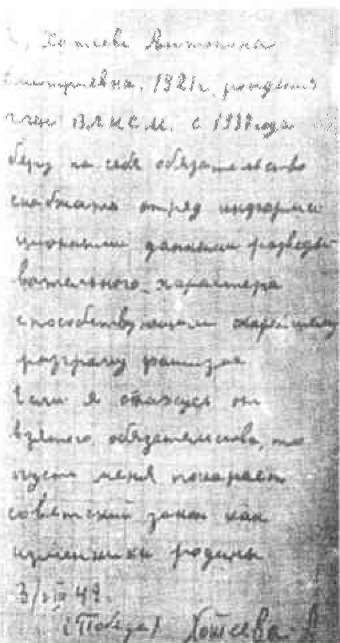 Я, Хотеева Антонина
Дмитриевна, 1921г. рождения
член ВЛКСМ. с 1937 года
беру на себя обязательство
снабжать отряд информаци
ционными данными разведы
вательного характера
способствующими скорейшему
разгрому фашизма
Если я откажусь от
взятого обязательства, то
пусть меня покарает
советский закон как
изменника родины
3/ 42.
(Победа) Хотеева А